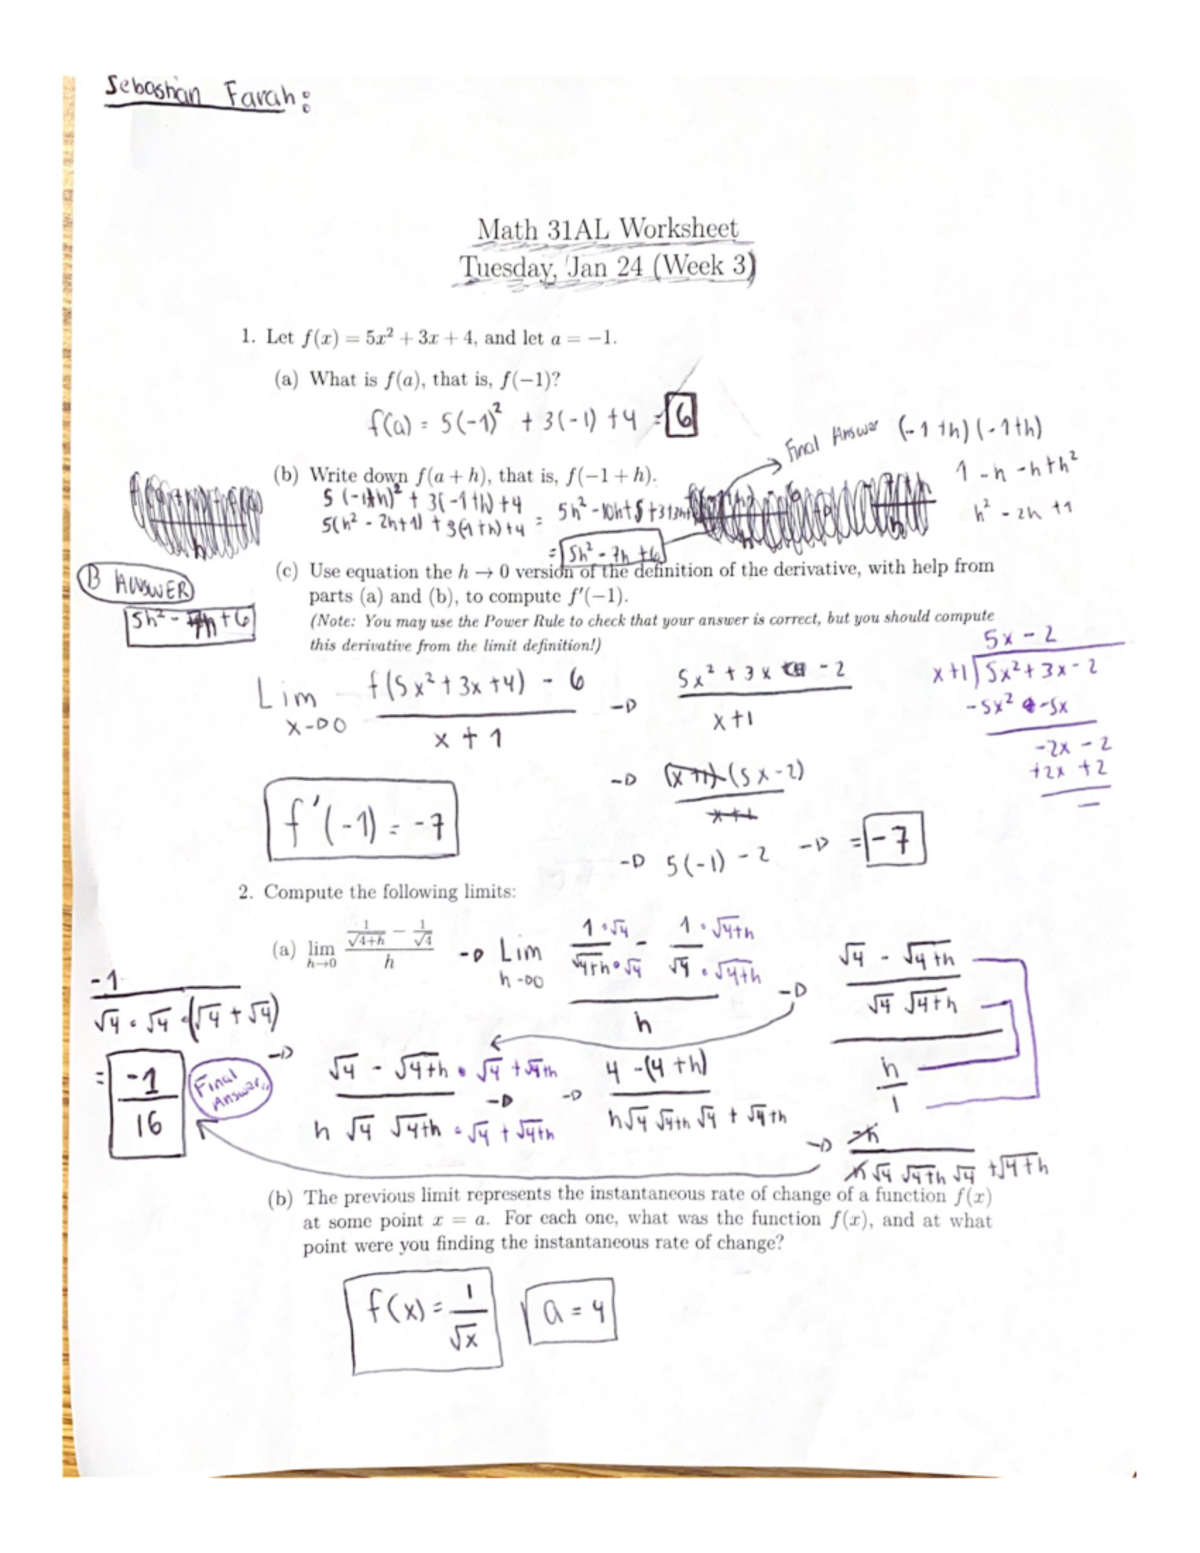 Sebashian Farah:
Math 31AL Worksheet
Tuesday, Jan 24 (Week 3)
1. Let f(x) = 5x² + 3x + 4, and let a = −1.
(a) What is f(a), that is, f(−1)?
f(a) = 5(-1)² + 3(-1) + 4 = 6
Final Answer (-1+h)(-1+h)
(b) Write down f(a + h), that is, f(−1 + h).
1 - h - h + h²
5(-1+h)² + 3(-1+h) + 4
5(h² - 2h+1) + 3(-1+h)+4 = 5h² - 10h+5+3+3h+
h² - 2h + 1
= 5h² - 7h + 6
(c) Use equation the h → 0 version of the definition of the derivative, with help from
B ANSWER
parts (a) and (b), to compute f′(−1).
5h² - 7h + 6
(Note: You may use the Power Rule to check that your answer is correct, but you should compute
this derivative from the limit definition!)
5x - 2
x+1 ) 5x² + 3x - 2
- 5x² - 5x
-2x - 2
+2x + 2
—
Lim x→0 f(5x² + 3x + 4) - 6 / x + 1 → 5x² + 3x - 2 / x+1
→ (x+1)(5x-2) / x+1
f'(-1) = -7
→ 5(-1) - 2 → = -7
2. Compute the following limits:
(a) lim h→0 (1/√4+h − 1/√4) / h → Lim h→0 (1·√4 / √4+h·√4 - 1·√4+h / √4·√4+h) / h → (√4 - √4+h / √4 √4+h) / (h/1)
√4 - √4+h · √4 + √4+h / h √4 √4+h · √4 + √4+h → 4 - (4+h) / h√4 √4+h √4 + √4+h
→ -h / h√4 √4+h √4 + √4+h
-1 / √4 · √4 · (√4 + √4)
= -1/16 Final Answer
(b) The previous limit represents the instantaneous rate of change of a function f(x)
at some point x = a. For each one, what was the function f(x), and at what
point were you finding the instantaneous rate of change?
f(x) = 1/√x a = 4